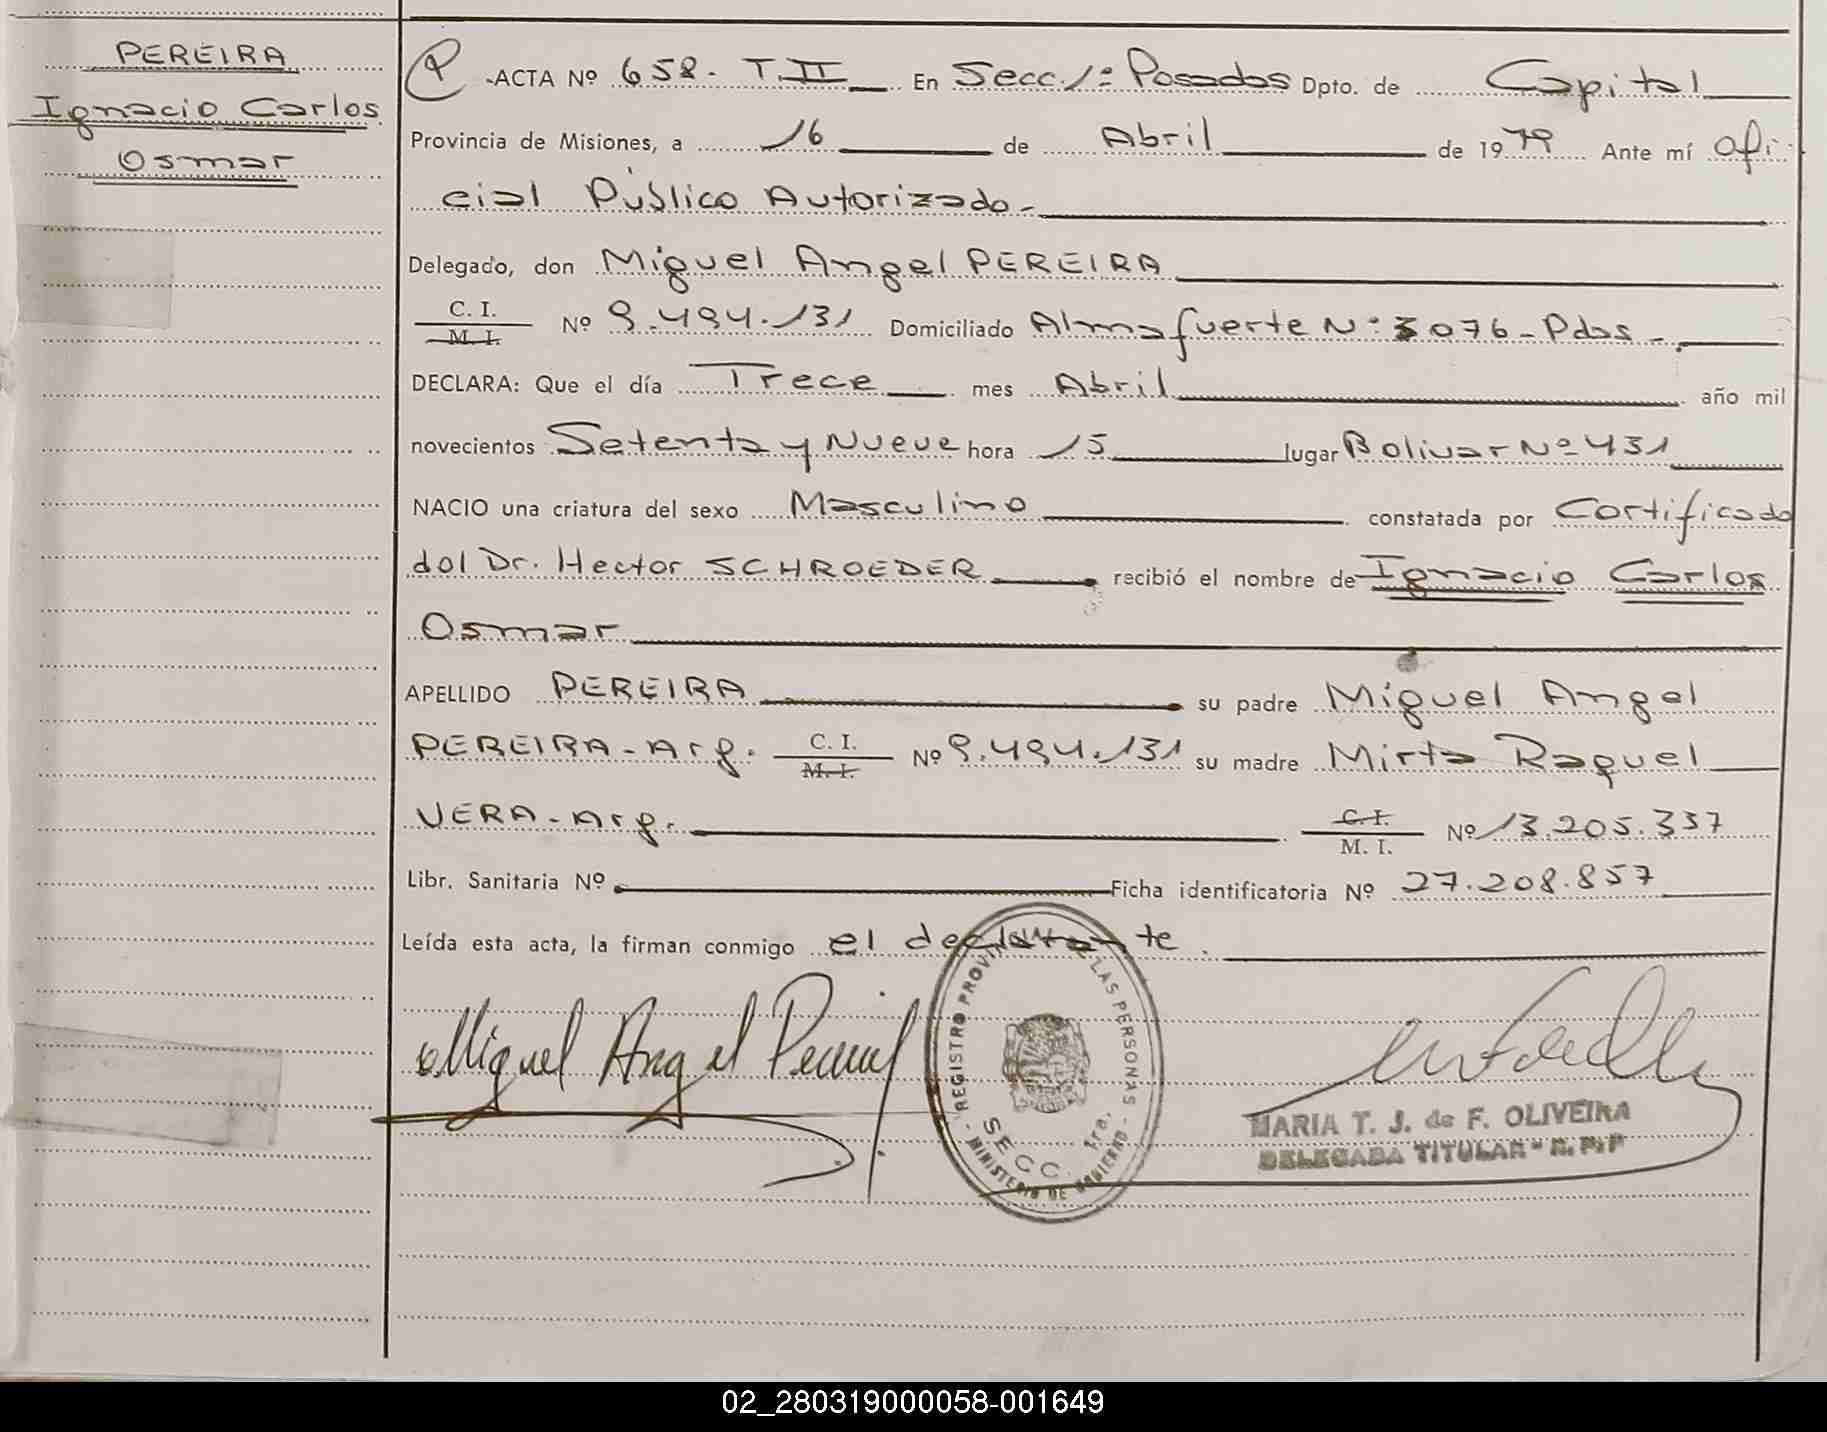 PEREIRA
Ignacio Carlos
Osmar
P -ACTA Nº 658. T.II En Secc. 1º Posadas Dpto. de Capital
Provincia de Misiones, a 16 de Abril de 1979 Ante mí Ofi-
cial Público Autorizado-
Delegado, don Miguel Angel PEREIRA
C. I.
M. I. Nº 9.494.131 Domiciliado Almafuerte Nº 3076-Pdas-
DECLARA: Que el día Trece mes Abril año mil
novecientos Setenta y Nueve hora 15 lugar Bolivar Nº 431
NACIO una criatura del sexo Masculino constatada por Certificado
del Dr. Hector SCHROEDER recibió el nombre de Ignacio Carlos
Osmar
APELLIDO PEREIRA su padre Miguel Angel
PEREIRA-Arg. C. I. M. I. Nº 9.494.131 su madre Mirta Raquel
VERA-Arg. C. I. M. I. Nº 13.205.337
Libr. Sanitaria Nº Ficha identificatoria Nº 27.208.857
Leída esta acta, la firman conmigo el declarante.
Miguel Angel Pereira
REGISTRO PROVINCIAL DE LAS PERSONAS
SECC. 1ra.
- MINISTERIO DE GOBIERNO -
MARIA T. J. de F. OLIVEIRA
DELEGADA TITULAR - R. P. P
02_280319000058-001649